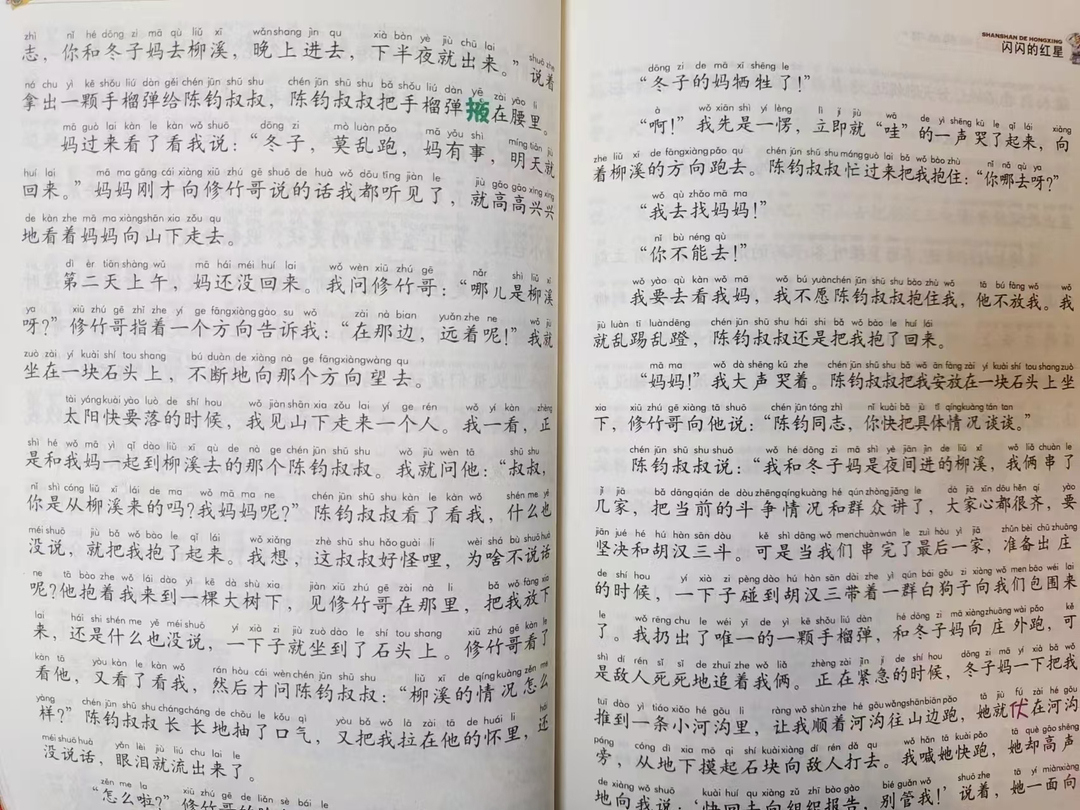 志，你和冬子妈去柳溪，晚上进去，下半夜就出来。”说着
拿出一颗手榴弹给陈钧叔叔，陈钧叔叔把手榴弹掖在腰里。
妈过来看了看我说：“冬子，莫乱跑，妈有事，明天就
回来。”妈妈刚才向修竹哥说的话我都听见了，就高高兴兴
地看着妈妈向山下走去。
第二天上午，妈还没回来。我问修竹哥：“哪儿是柳溪
呀？”修竹哥指着一个方向告诉我：“在那边，远着呢！”我就
坐在一块石头上，不断地向那个方向望去。
太阳快要落的时候，我见山下走来一个人。我一看，正
是和我妈一起到柳溪去的那个陈钧叔叔。我就问他：“叔叔，
你是从柳溪来的吗？我妈妈呢？”陈钧叔叔看了看我，什么也
没说，就把我抱了起来。我想，这叔叔好怪哩，为啥不说话
呢？他抱着我来到一棵大树下，见修竹哥在那里，把我放下
来，还是什么也没说，一下子就坐到了石头上。修竹哥看了
看他，又看了看我，然后才问陈钧叔叔：“柳溪的情况怎么
样？”陈钧叔叔长长地抽了口气，又把我拉在他的怀里，还
没说话，眼泪就流出来了。
“怎么啦？”修竹哥的
SHANSHAN DE HONGXING
闪闪的红星
“冬子的妈牺牲了！”
“啊！”我先是一愣，立即就“哇”的一声哭了起来，向
着柳溪的方向跑去。陈钧叔叔忙过来把我抱住：“你哪去呀？”
“我去找妈妈！”
“你不能去！”
我要去看我妈，我不愿陈钧叔叔抱住我，他不放我。我
就乱踢乱蹬，陈钧叔叔还是把我抱了回来。
“妈妈！”我大声哭着。陈钧叔叔把我安放在一块石头上坐
下，修竹哥向他说：“陈钧同志，你快把具体情况谈谈。”
陈钧叔叔说：“我和冬子妈是夜间进的柳溪，我俩串了
几家，把当前的斗争情况和群众讲了，大家心都很齐，要
坚决和胡汉三斗。可是当我们串完了最后一家，准备出庄
的时候，一下子碰到胡汉三带着一群白狗子向我们包围来
了。我扔出了唯一的一颗手榴弹，和冬子妈向庄外跑，可
是敌人死死地追着我俩。正在紧急的时候，冬子妈一下把我
推到一条小河沟里，让我顺着河沟往山边跑，她就伏在河沟
旁，从地下摸起石块向敌人打去。我喊她快跑，她却高声
地向我说：‘快回去向组织报告，别管我！’说着，她一面向